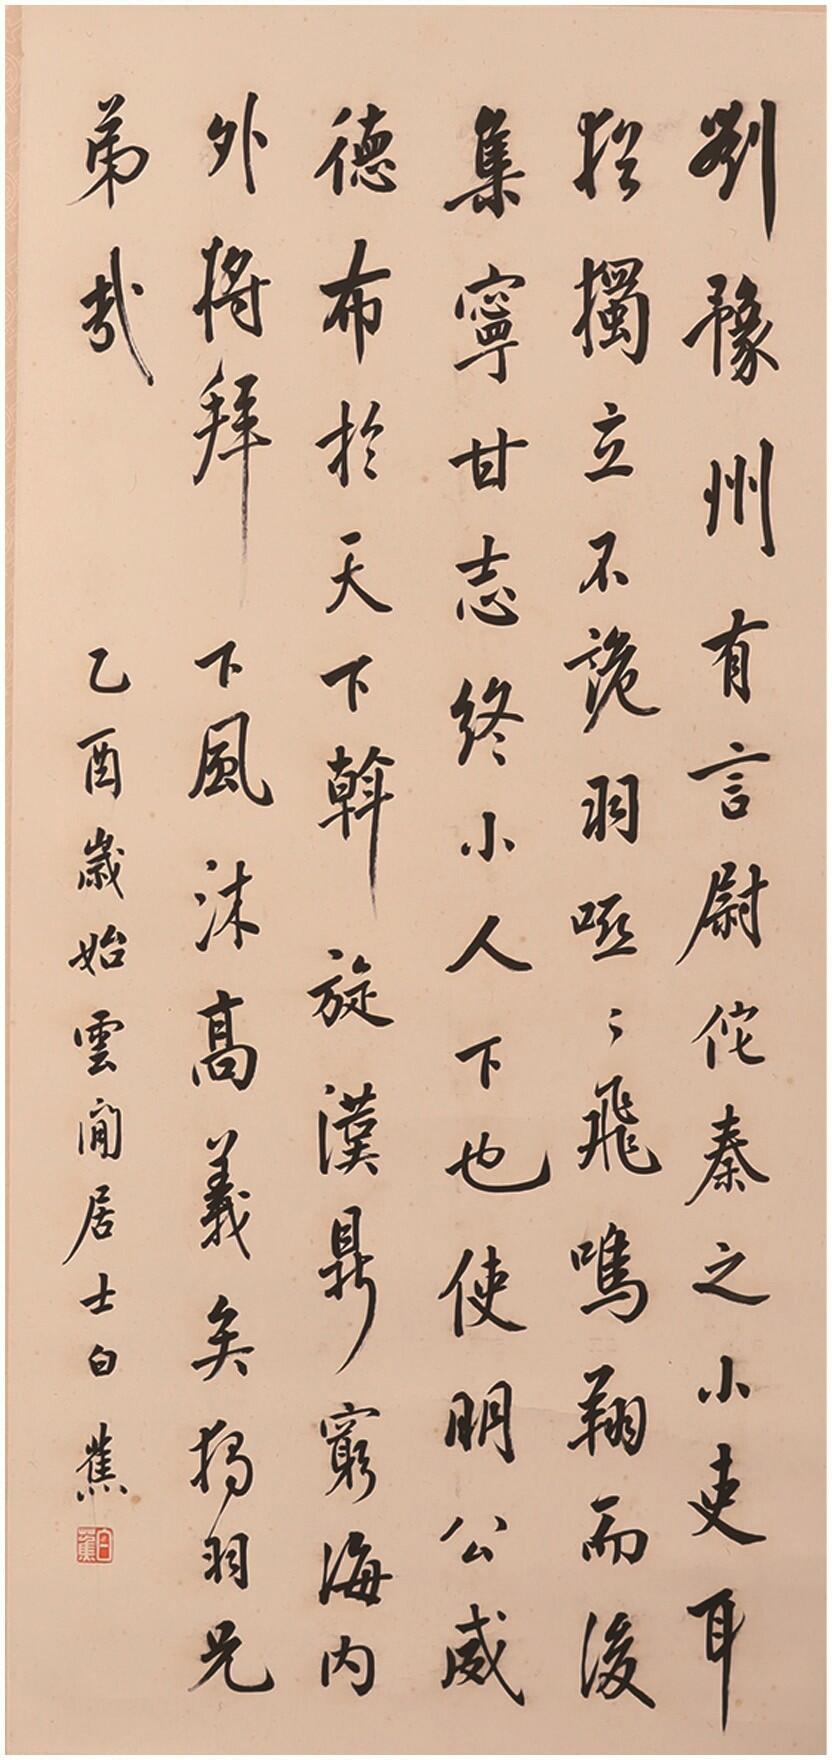 劉豫州有言尉佗秦之小吏耳
猶獨立不詭羽咺〻飛鳴翔而後
集寧甘志終小人下也使明公威
德布於天下斡旋漢鼎窮海内
外将拜下風沐高義矣獨羽兄
弟哉
乙酉歲始雲間居士白蕉
白蕉